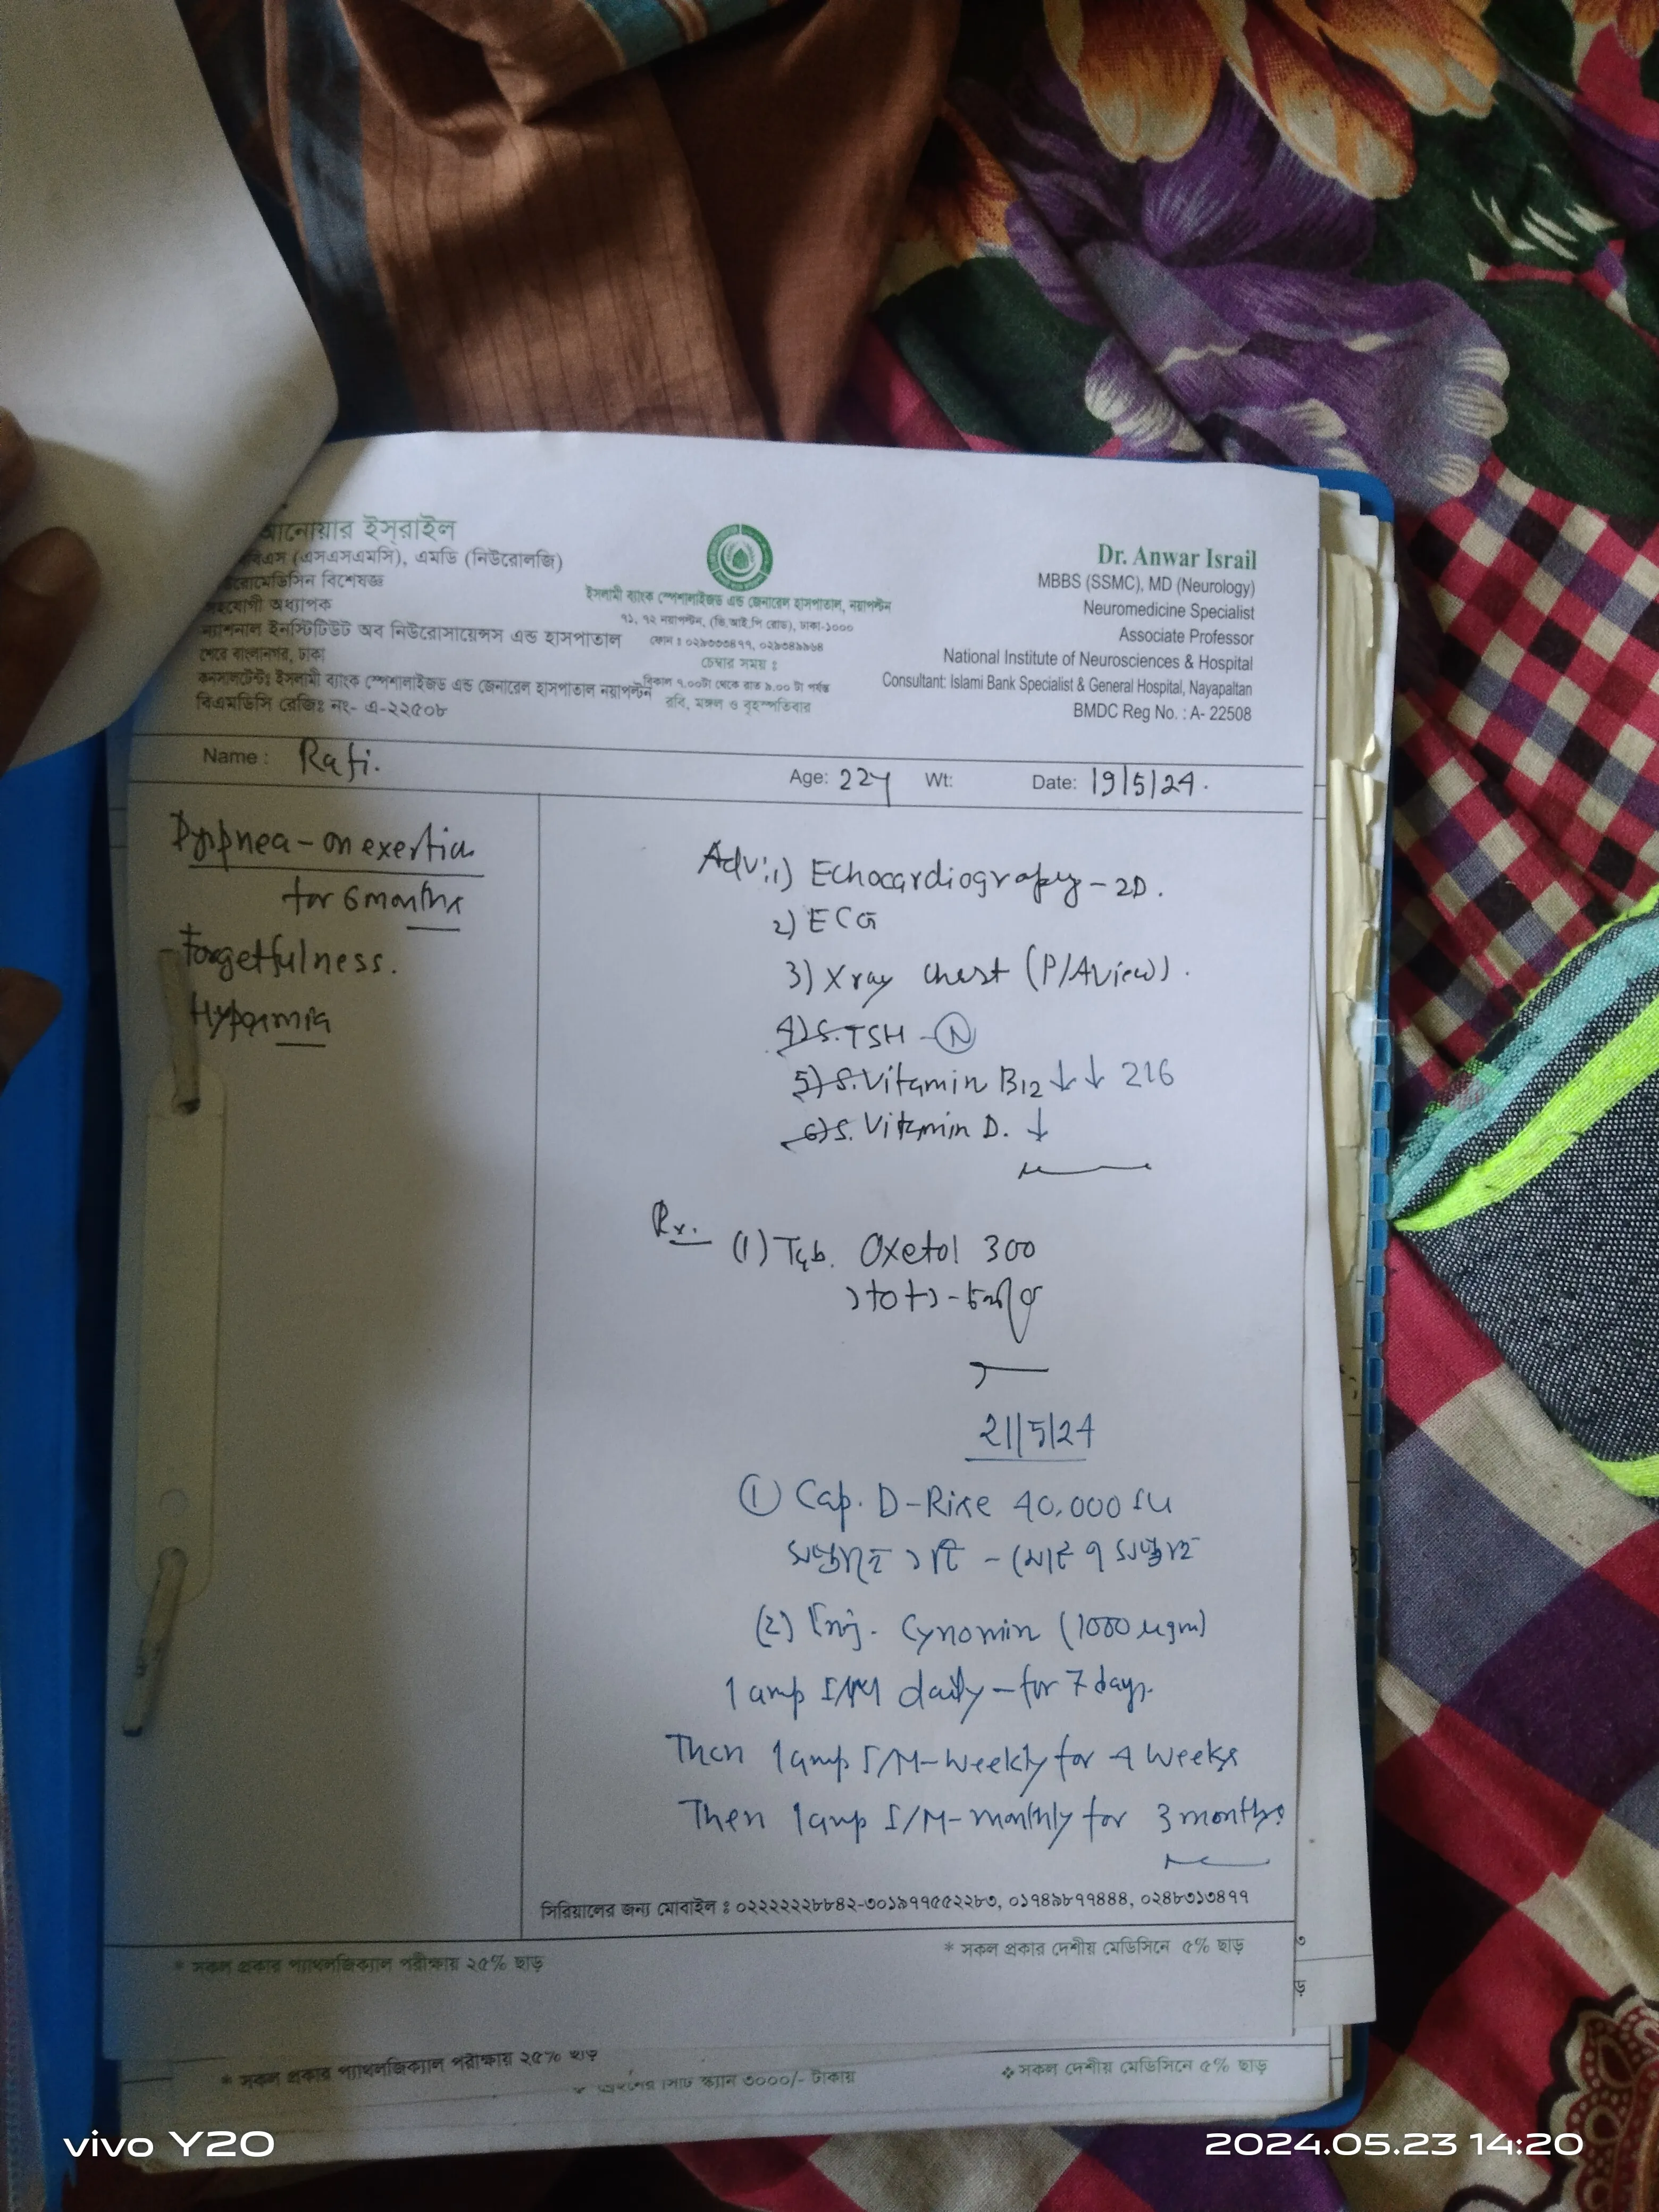 আনোয়ার ইস্‌রাইল
(এসএসএমসি), এমডি (নিউরোলজি)
বিশেষজ্ঞ
সহযোগী অধ্যাপক
ন্যাশনাল ইনস্টিটিউট অব নিউরোসায়েন্সেস এন্ড হাসপাতাল
শেরে বাংলানগর, ঢাকা
কনসালটেন্টঃ ইসলামী ব্যাংক স্পেশালাইজড এন্ড জেনারেল হাসপাতাল নয়াপল্টন
বিএমডিসি রেজিঃ নং- এ-২২৫০৮
ইসলামী ব্যাংক স্পেশালাইজড এন্ড জেনারেল হাসপাতাল, নয়াপল্টন
৭১, ৭২ নয়াপল্টন, (ভি.আই.পি রোড), ঢাকা-১০০০
চেম্বার সময় ঃ
বিকাল ৭.০০টা থেকে রাত ৯.০০ টা পর্যন্ত
রবি, মঙ্গল ও বৃহস্পতিবার
Dr. Anwar Israil
MBBS (SSMC), MD (Neurology)
Neuromedicine Specialist
Associate Professor
National Institute of Neurosciences & Hospital
Consultant: Islami Bank Specialist & General Hospital, Nayapaltan
BMDC Reg No. : A- 22508
Name : Rafi.
Age: 22y Wt: Date: 19/5/24.
Dyspnea - on exertion
for 6 months
- Forgetfulness.
Adv: 1) Echocardiography - 2D.
2) ECG
3) Xray chest (P/A view).
4) S. TSH - N
5) S. Vitamin B12 ↓↓ 216
6) S. Vitamin D. ↓
Rx. (1) Tab. Oxetol 300
১+০+১ -
21/5/24
① Cap. D-Rise 40,000 IU
সপ্তাহে ১টি - মোট ৭ সপ্তাহ
(2) Inj. Cynomin (1000 µgm)
1 amp I/M daily - for 7 days.
Then 1 amp I/M - weekly for 4 weeks
Then 1 amp I/M - monthly for 3 months
সিরিয়ালের জন্য মোবাইল ঃ ০২২২২২২৮৮৪২-৩০১৯৭৭৫৫২২৮৩, ০১৭৪৯৮৭৭৪৪৪, ০২৪৮৩১৩৪৭৭
* সকল প্রকার প্যাথলজিক্যাল পরীক্ষায় ২৫% ছাড় * সকল প্রকার দেশীয় মেডিসিনে ৫% ছাড়
* সকল প্রকার প্যাথলজিক্যাল পরীক্ষায় ২৫% ছাড়
স্ক্যান ৩০০০/- টাকায়
❖ সকল দেশীয় মেডিসিনে ৫% ছাড়
vivo Y20
2024.05.23 14:20